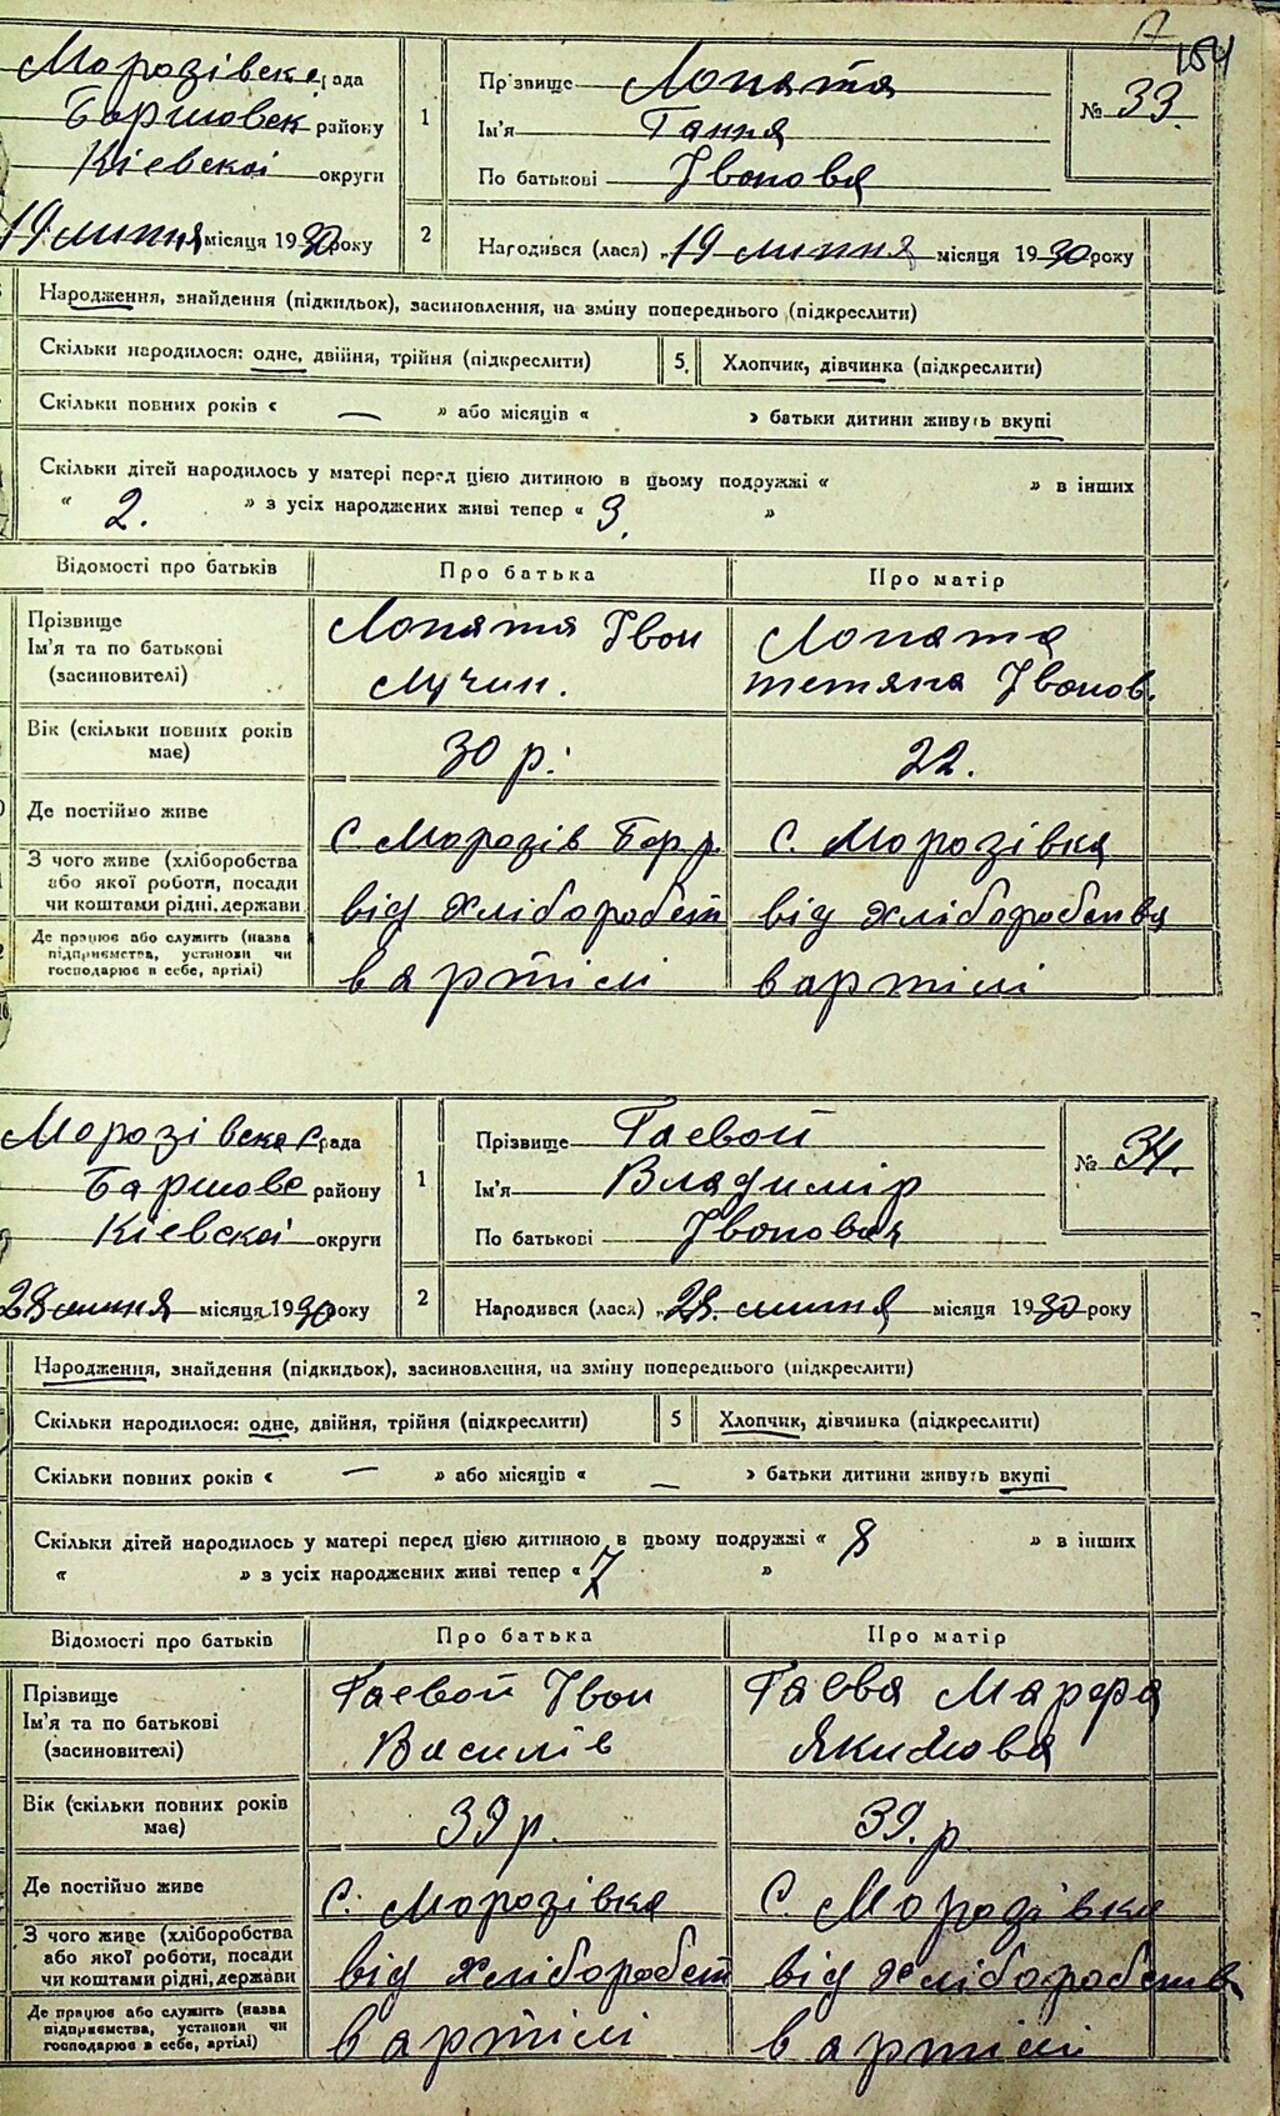 154
Морозівска рада
Баришовск району
Кіевскоі округи
19 липня місяця 1930 року
1
Прізвище Лопата
Ім'я Ганна
По батькові Івановна
№ 33.
2
Народився (лася) „19 липня місяця 1930 року
Народження, знайдення (підкидьок), засиновлення, на зміну попереднього (підкреслити)
Скільки народилося: одне, двійня, трійня (підкреслити) 5. Хлопчик, дівчинка (підкреслити)
Скільки повних років « — » або місяців « » батьки дитини живуть вкупі
Скільки дітей народилось у матері перед цією дитиною в цьому подружжі « » в інших
« 2. » з усіх народжених живі тепер « 3. »
Відомості про батьків Про батька Про матір
Прізвище
Ім'я та по батькові
(засиновителі)
Лопата Іван
Лучин.
Лопата
тетяна Іванов.
Вік (скільки повних років
має)
30 р. 22.
Де постійно живе
С. Морозів Бар. р. С. Морозівка
З чого живе (хліборобства
або якої роботи, посади
чи коштами рідні, держави
від хліборобст від хліборобства
Де працює або служить (назва
підприємства, установи чи
господарює в себе, артілі)
в артілі в артілі
Морозівска С рада
Баришовс району
Кіевскоі округи
28 липня місяця 1930 року
1
Прізвище Гаевой
Ім'я Владимір
По батькові Івановая
№ 34.
2
Народився (лася) „28. липня місяця 1930 року
Народження, знайдення (підкидьок), засиновлення, на зміну попереднього (підкреслити)
Скільки народилося: одне, двійня, трійня (підкреслити) 5 Хлопчик, дівчинка (підкреслити)
Скільки повних років « — » або місяців « — » батьки дитини живуть вкупі
Скільки дітей народилось у матері перед цією дитиною в цьому подружжі « 8 » в інших
« » з усіх народжених живі тепер « 7 »
Відомості про батьків Про батька Про матір
Прізвище
Ім'я та по батькові
(засиновителі)
Гаевой Іван
Василів
Гаева Марфа
Якимова
Вік (скільки повних років
має)
39 р. 39. р
Де постійно живе
С. Морозівка С. Морозівка
З чого живе (хліборобства
або якої роботи, посади
чи коштами рідні, держави
від хліборобст від хліборобства
Де працює або служить (назва
підприємства, установи чи
господарює в себе, артілі)
в артілі в артілі